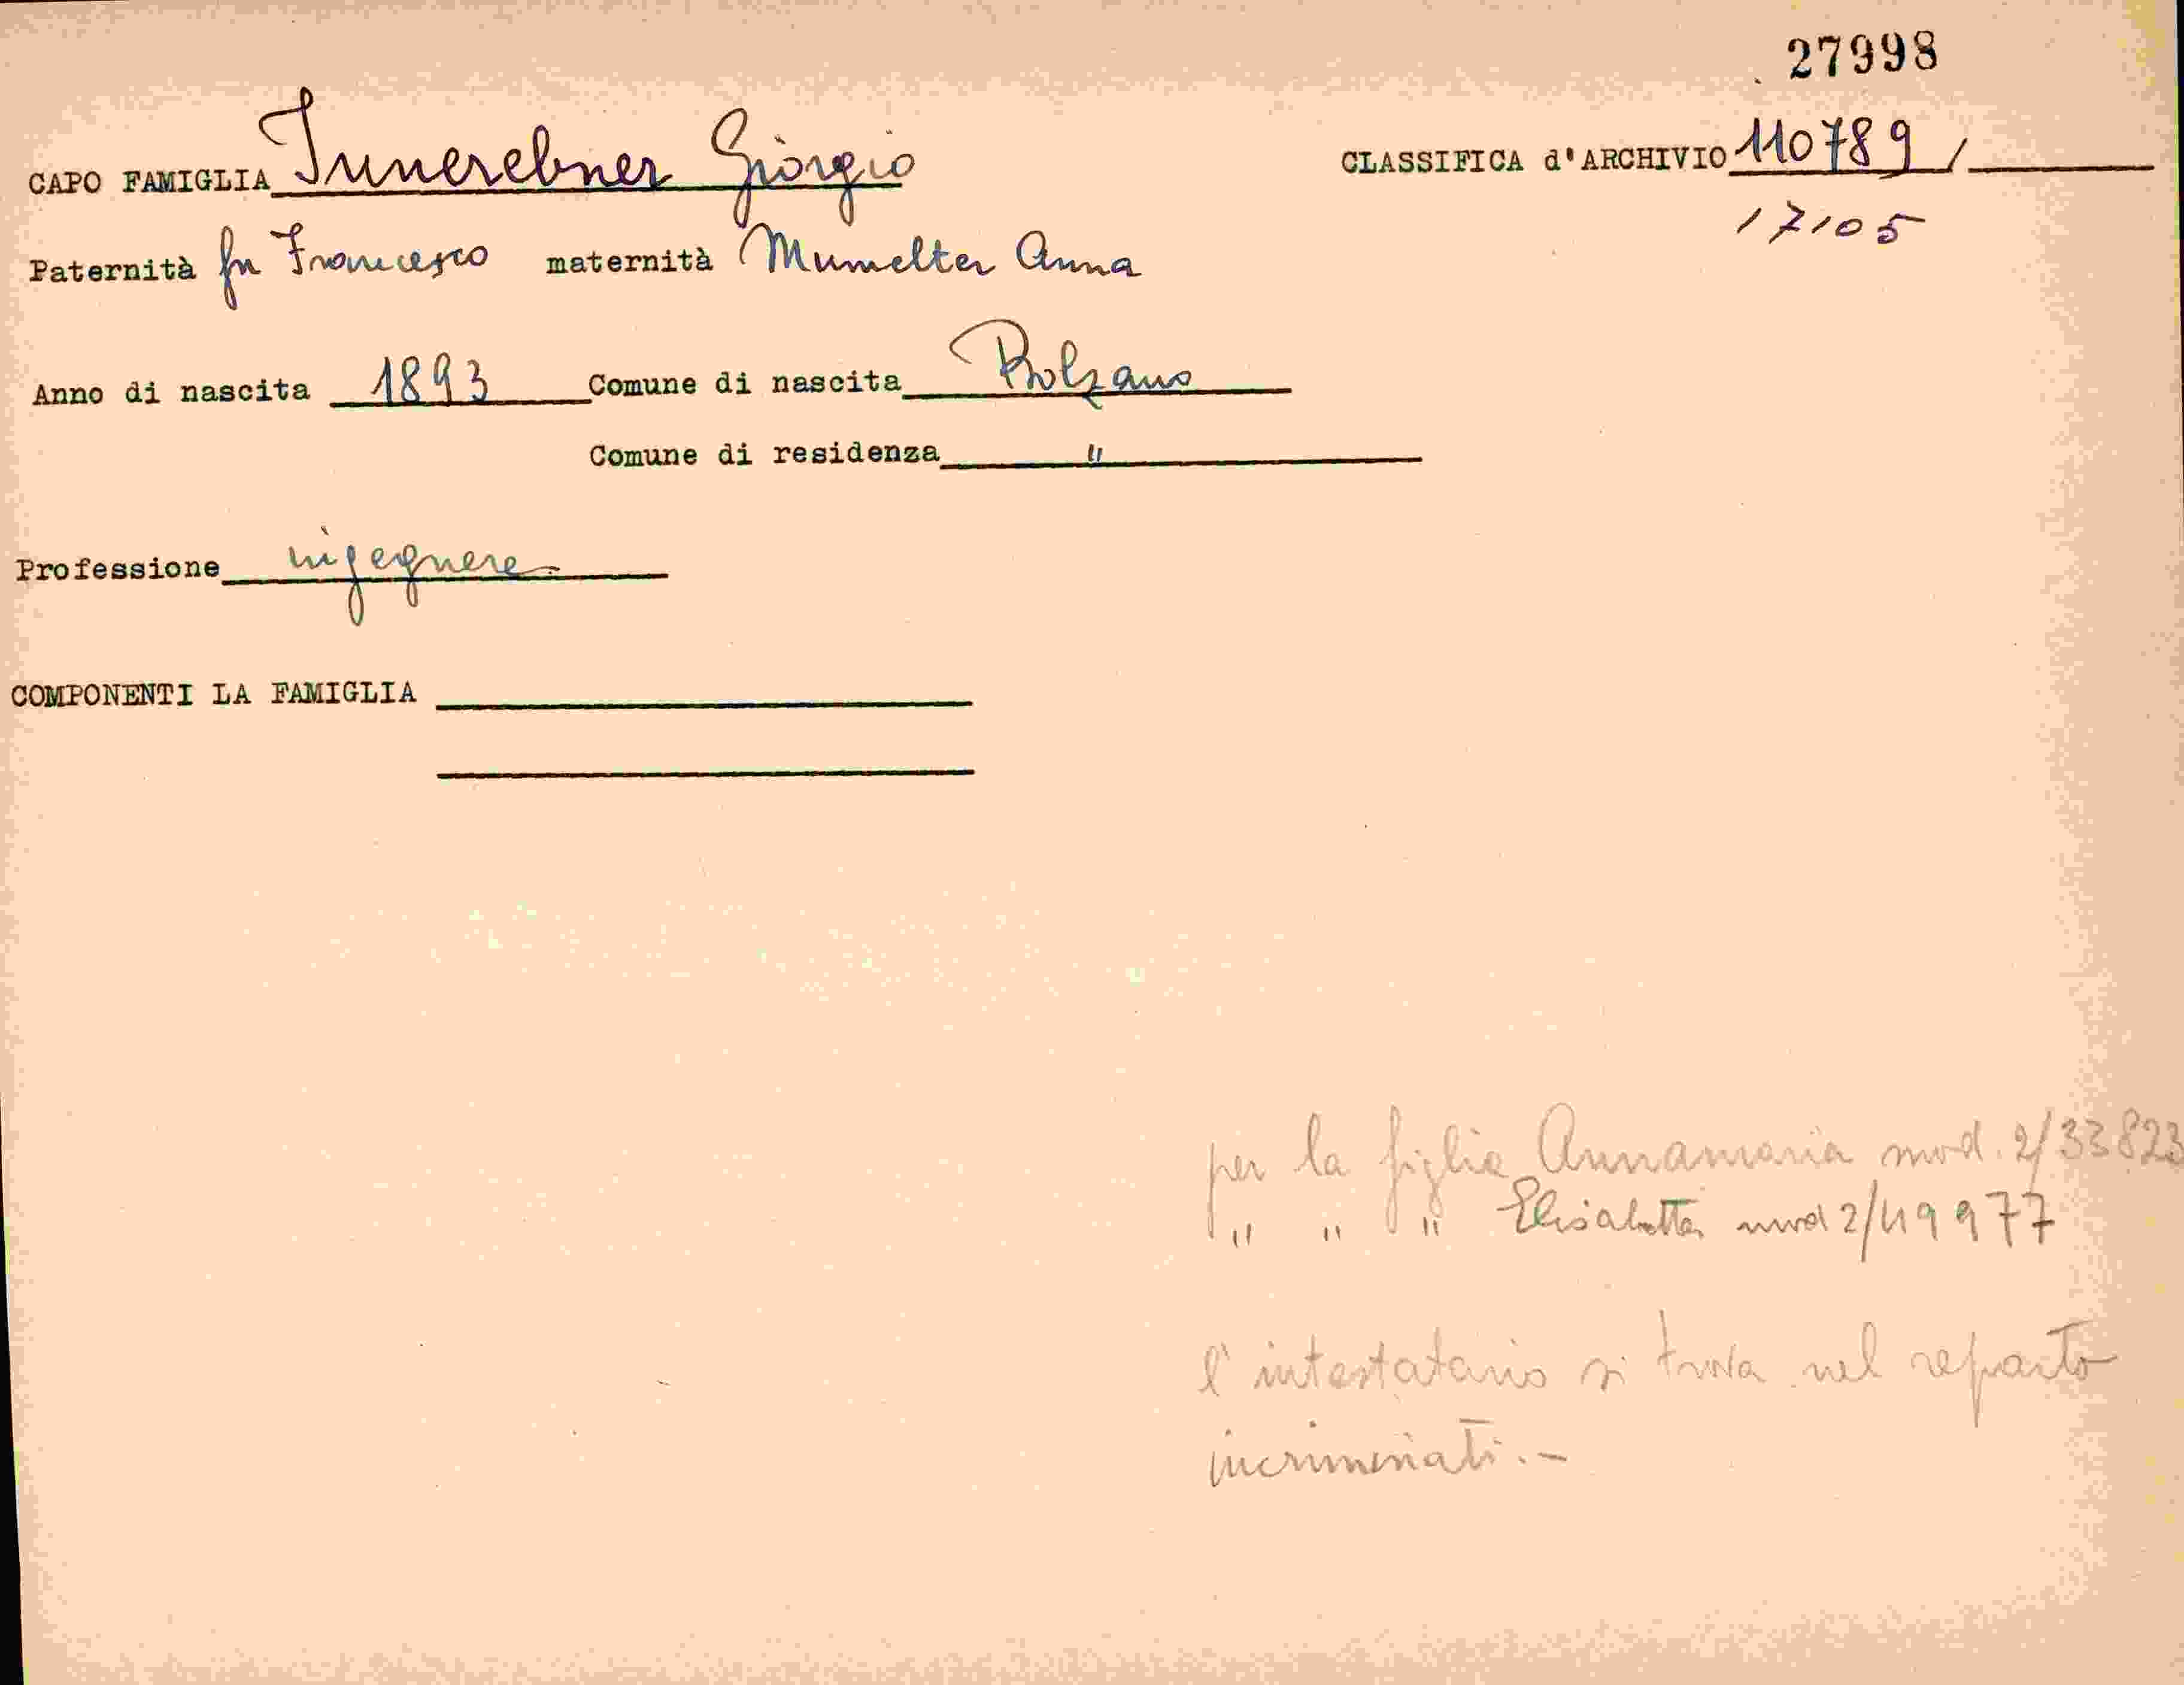 27998
CAPO FAMIGLIA Innerebner Giorgio CLASSIFICA d'ARCHIVIO 110789/
17105
Paternità fu Francesco maternità Mumelter Anna
Anno di nascita 1893 Comune di nascita Bolzano
Comune di residenza "
Professione ingegnere
COMPONENTI LA FAMIGLIA
per la figlia Annamaria mod. 2/33823
" " " Elisabetta mod 2/49977
l'intestatario si trova nel reparto
incriminati.-